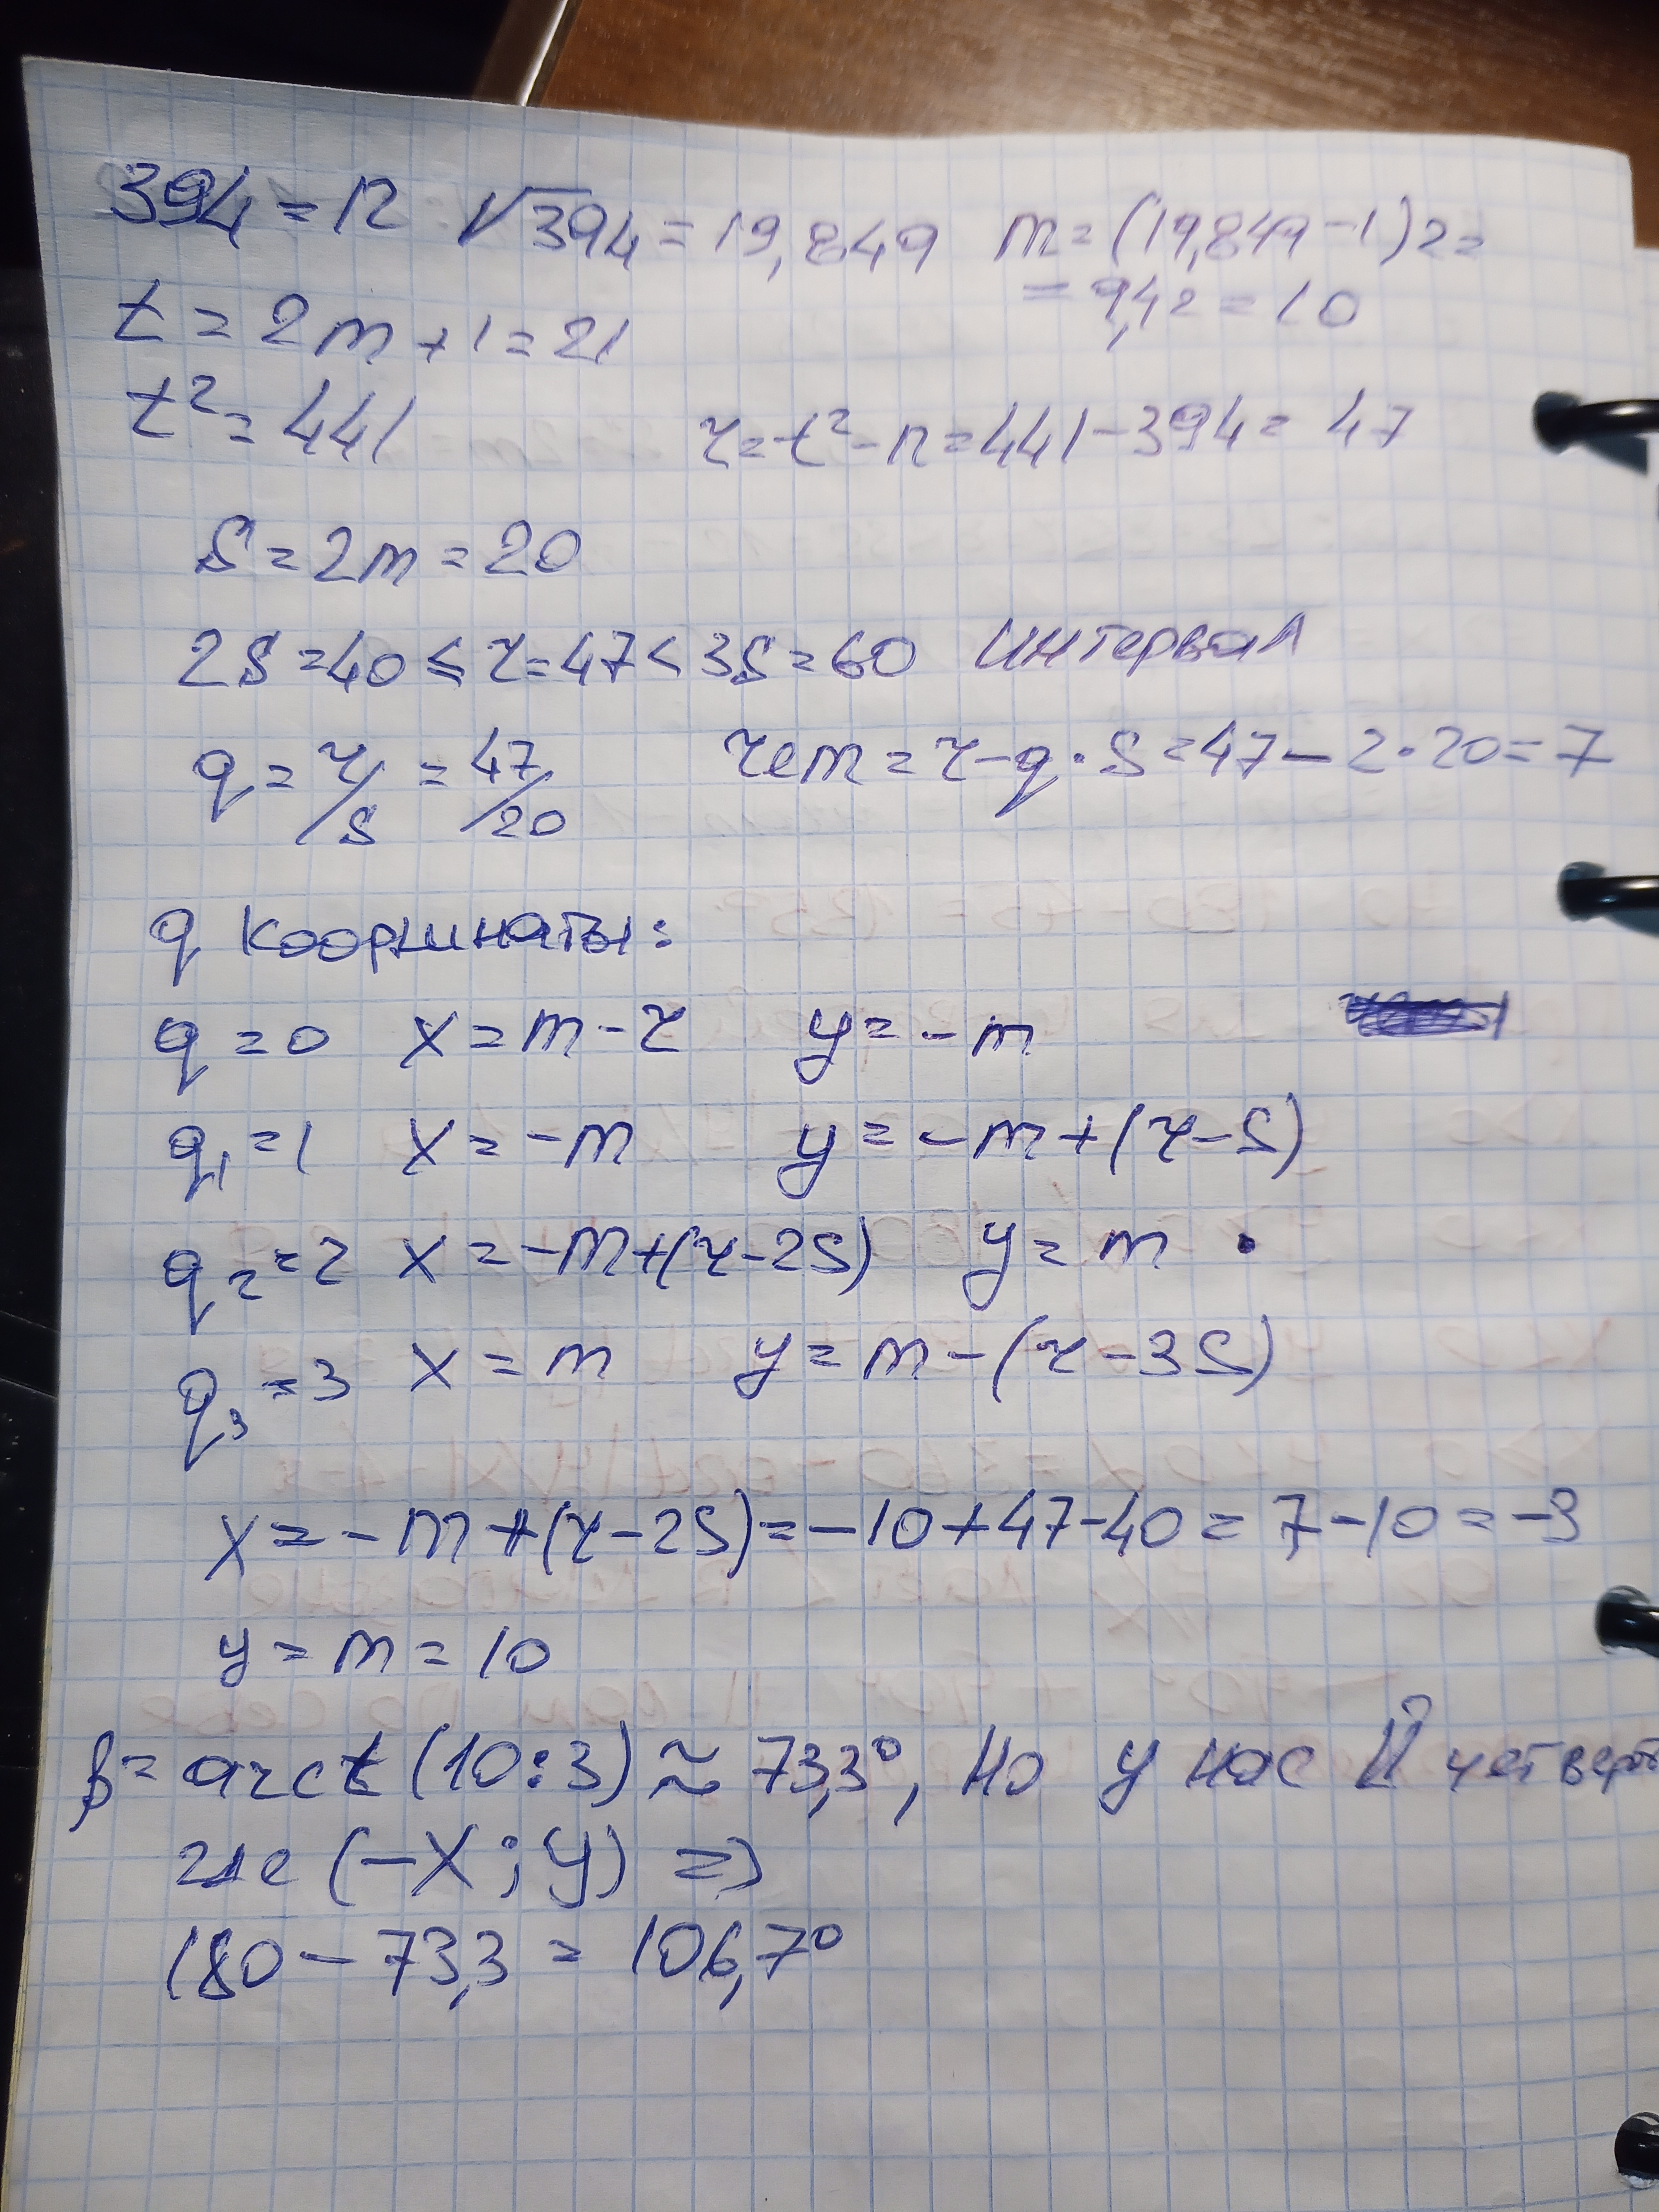 394 = n √394 = 19,849 m = (19,849 - 1) 2 =
= 9,42 = 10
t = 2m + 1 = 21
t² = 441 r = t² - n = 441 - 394 = 47
S = 2m = 20
2S = 40 ≤ r = 47 < 3S = 60 интервал
q = r/S = 47/20 rem = r - q · S = 47 - 2 · 20 = 7
q координаты:
q = 0 x = m - r y = -m
q₁ = 1 x = -m y = -m + (r - S)
q₂ = 2 x = -m + (r - 2S) y = m •
q₃ = 3 x = m y = m - (r - 3S)
x = -m + (r - 2S) = -10 + 47 - 40 = 7 - 10 = -3
y = m = 10
β = arct (10:3) ≈ 73,3°, но у нас II четверть
где (-X; Y) =>
180 - 73,3 = 106,7°